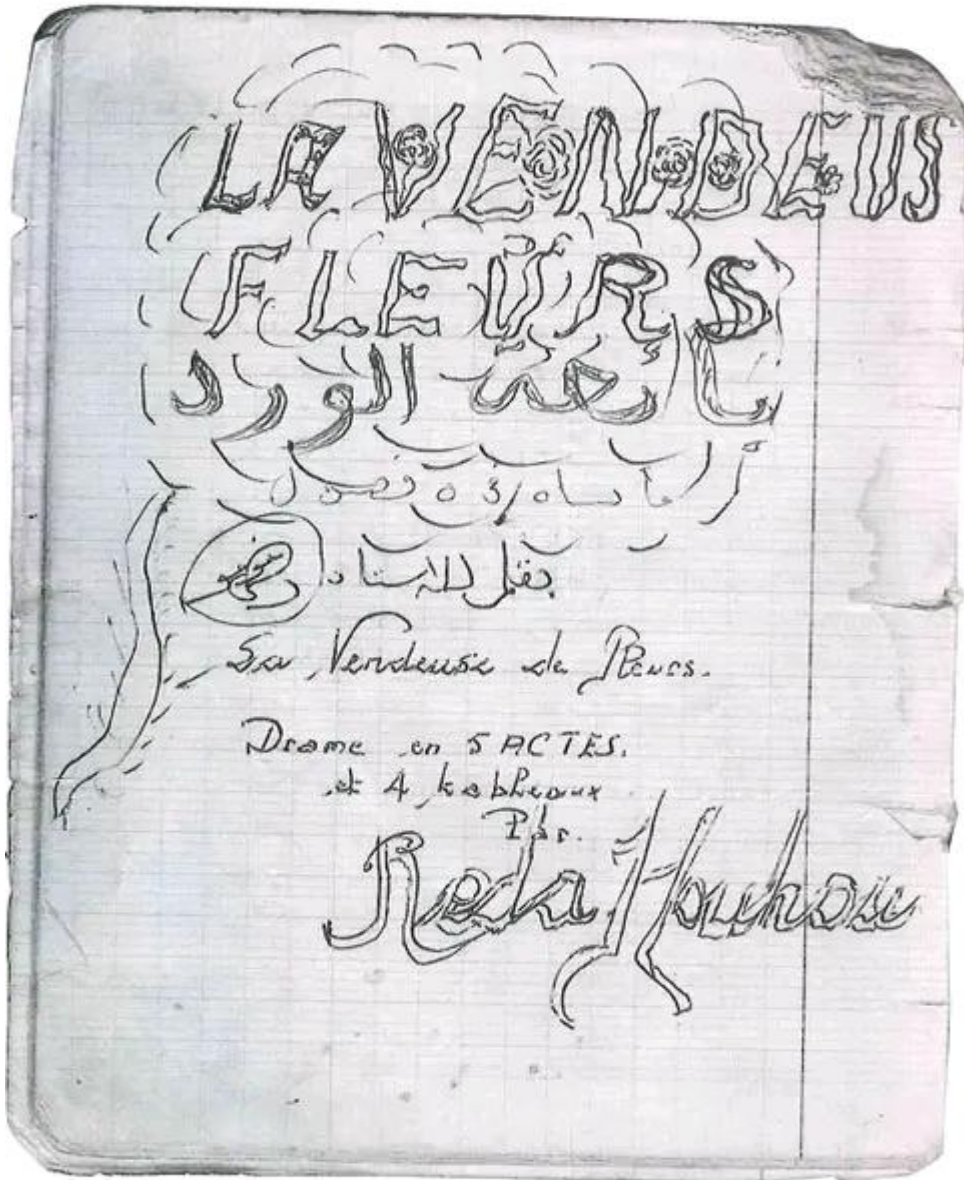 LA VENDEUS
FLEURS
بائعة الورد
مأساة 3 فصول
بقلم الأستاذ
La Vendeuse de Fleurs.
Drame en 5 ACTES.
et 4 tableaux
Par.
Reda Houhou